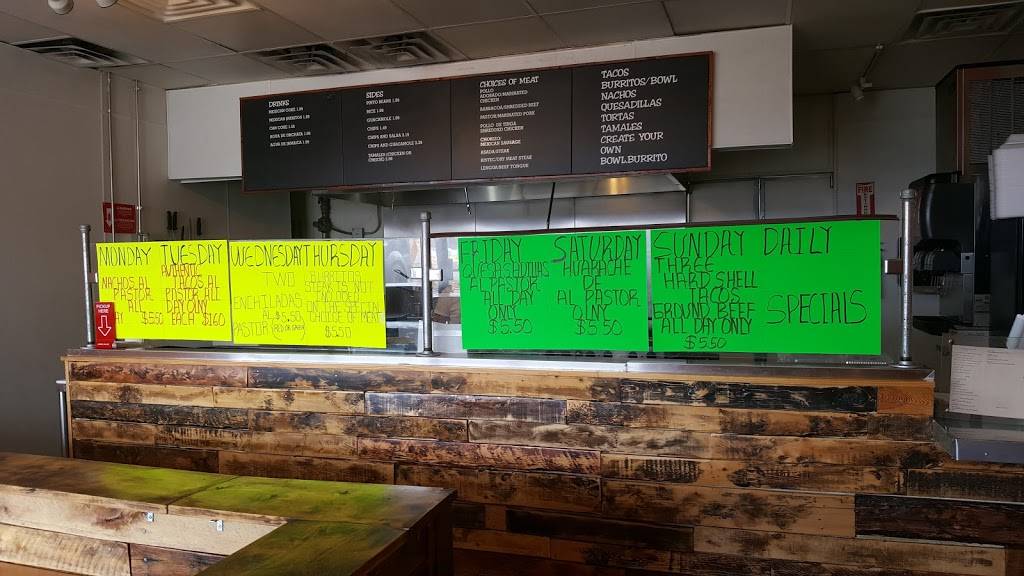 DRINKS
MEXICAN COKE 1.99
MEXICAN JARRITOS 1.99
CAN COKE 1.25
AGUA DE JAMAICA 1.99
SIDES
PINTO BEANS 1.99
RICE 1.99
GUACAMOLE 1.99
CHIPS 1.49
CHIPS AND SALSA 2.19
CHIPS AND GUACAMOLE 3.29
TAMALES (CHICKEN OR
CHEESE)
CHOICES OF MEAT
POLLO
ADOBADO/MARINATED
CHICKEN
BARBACOA/SHREDDED BEEF
PASTOR/MARINATED PORK
POLLO DE TINGA
SHREDDED CHICKEN
CHORIZO/
MEXICAN SAUSAGE
ASADA/STEAK
BISTEC/DRY MEAT STEAK
LENGUA/BEEF TONGUE
TACOS
BURRITOS/BOWL
NACHOS
QUESADILLAS
TORTAS
TAMALES
CREATE YOUR
OWN
BOWL.BURRITO
FIRE
MONDAY
NACHOS AL
PASTOR
ALL
$5.50
TUESDAY
TACOS AL
PASTOR ALL
DAY ONLY
EACH $1.60
WEDNESDAY
TWO
ENCHILADAS
AL $5.50
PASTOR (RED OR GREEN)
THURSDAY
BURRITOS
STEAK IS NOT
INCLUDED
CHOICE OF MEAT
$5.50
FRIDAY
QUESADILLAS
AL PASTOR
ALL DAY
ONLY
$5.50
SATURDAY
HUARACHE
DE
AL PASTOR
OLNY
$5.50
SUNDAY
THREE
HARD SHELL
TACOS
GROUND BEEF
ALL DAY ONLY
$5.50
DAILY
SPECIALS
PICKUP
HERE